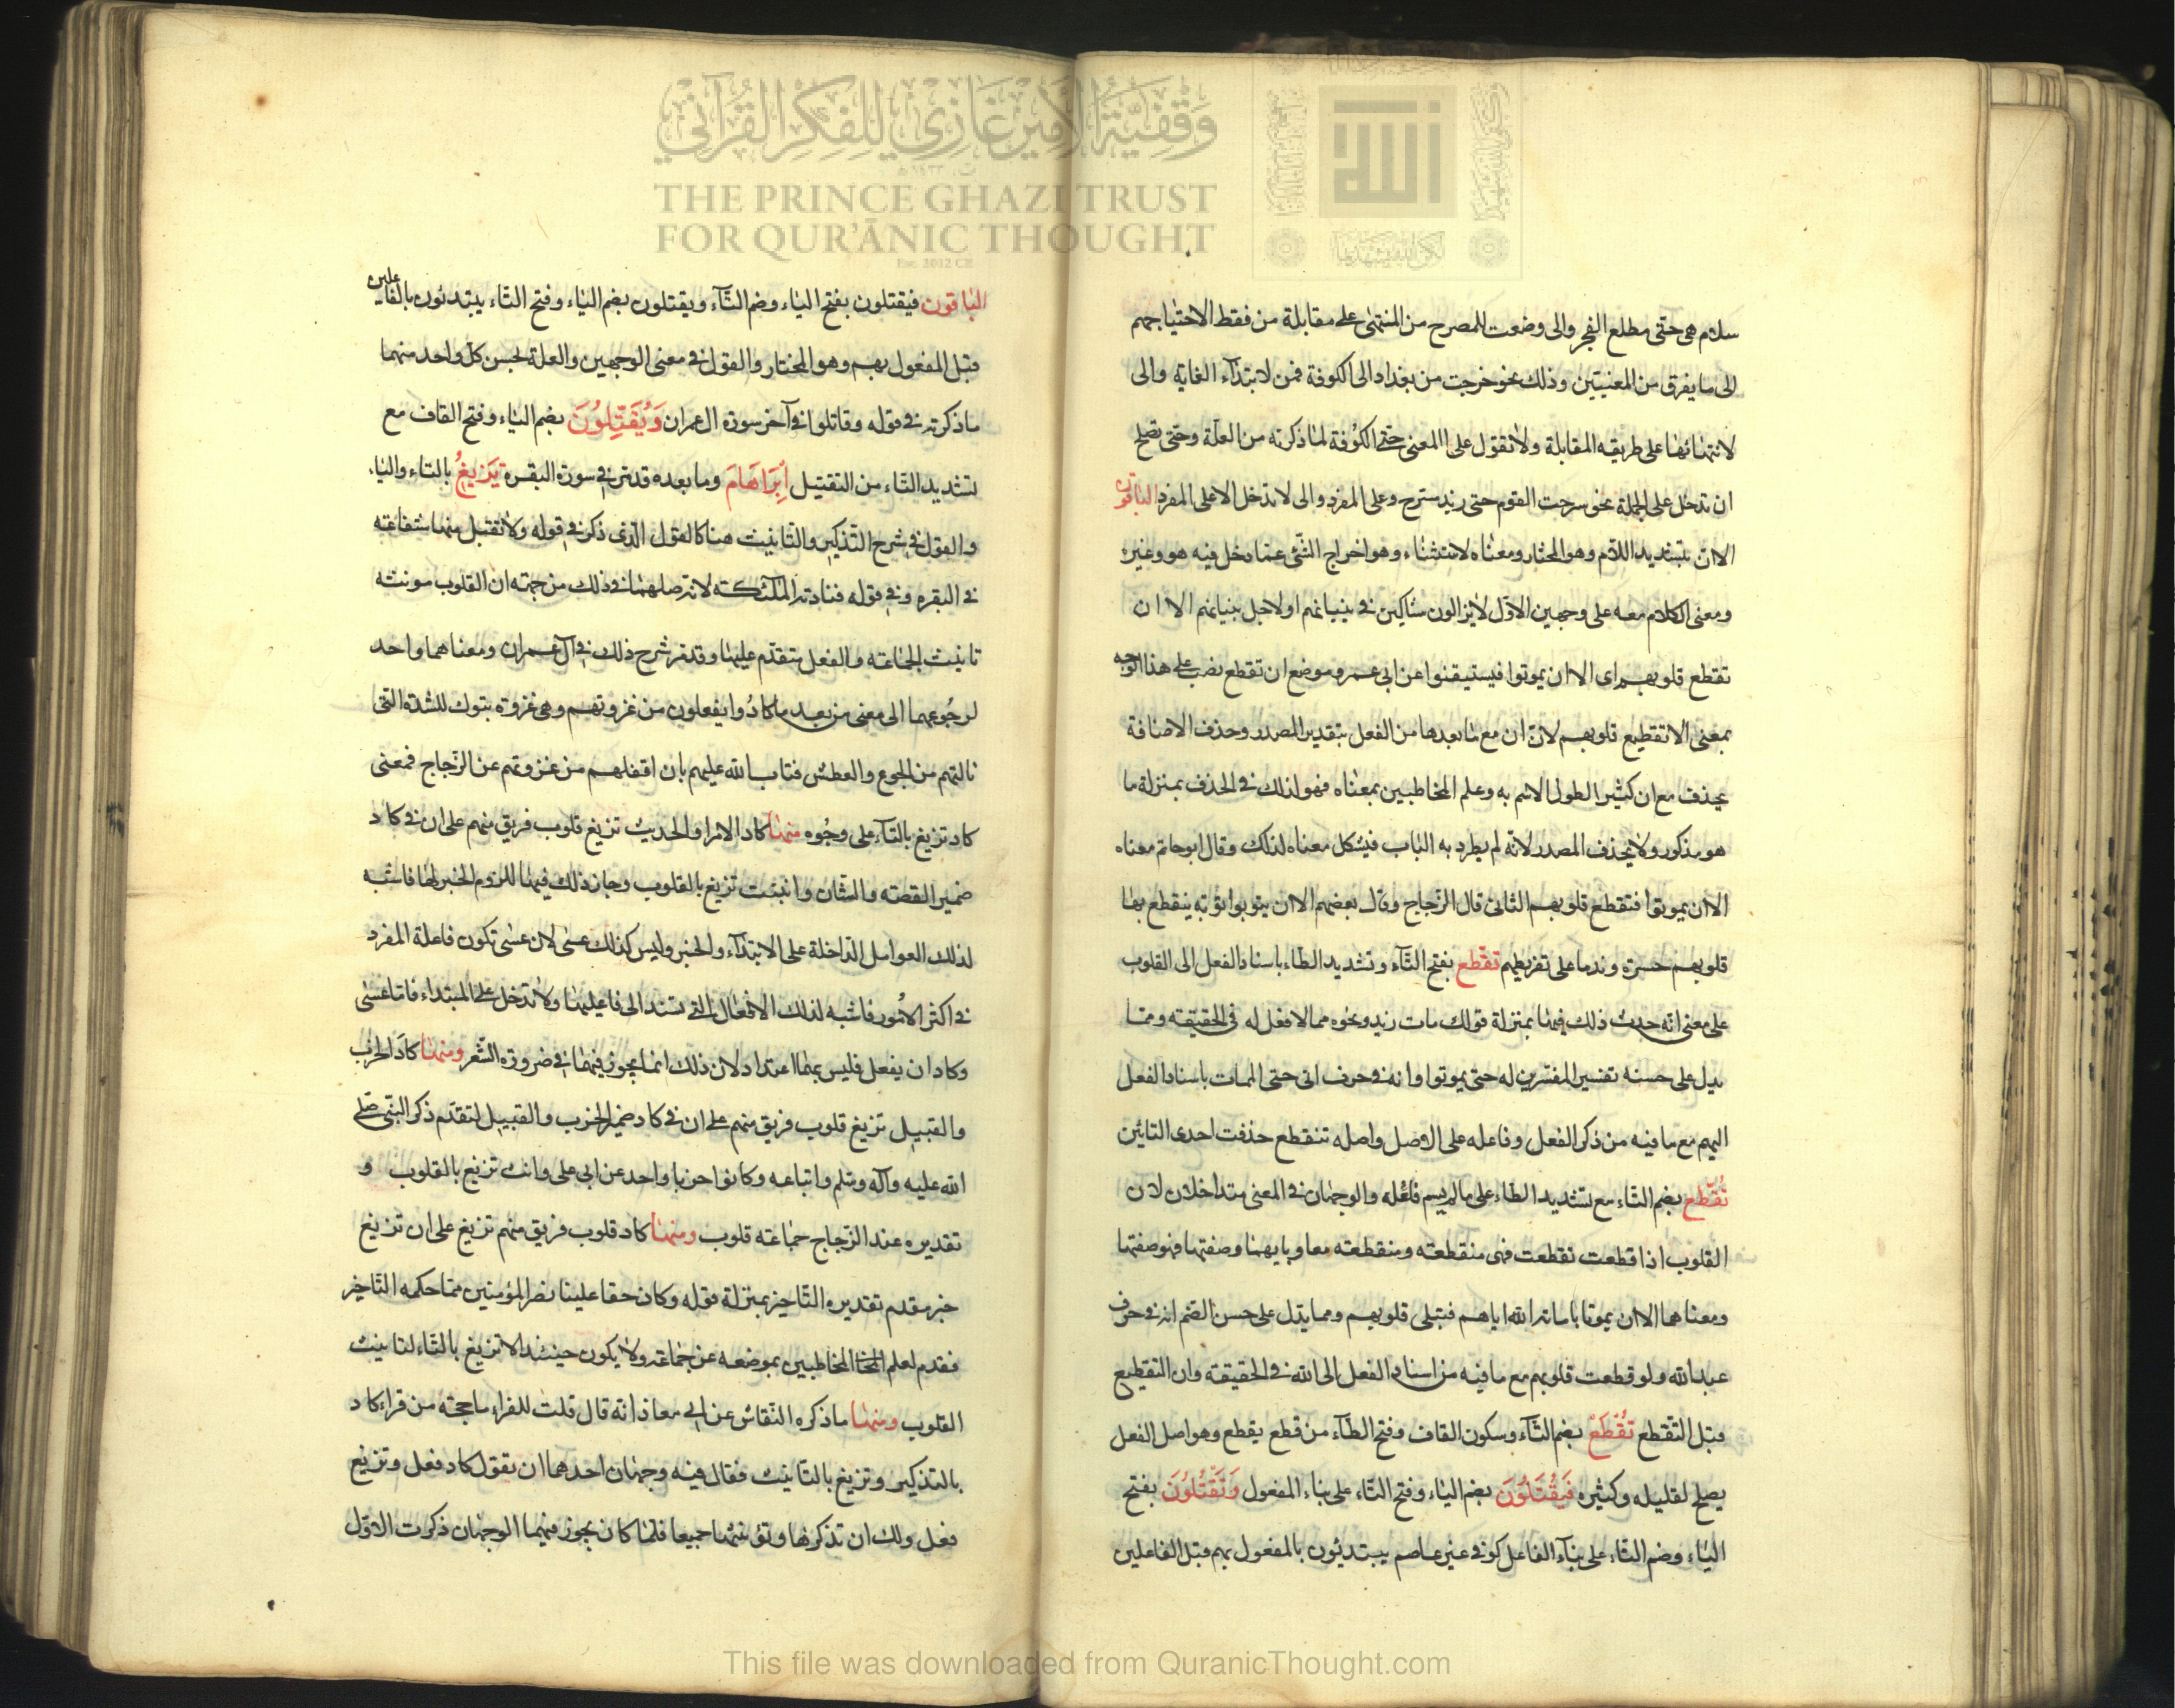 وقفية الأمير غازي للفكر القرآني
THE PRINCE GHAZI TRUST
FOR QUR'ĀNIC THOUGHT
Est. 2012 CE
سلام هى حتى مطلع الفجر والى وضعت للمصرح من المنتهى على مقابلة من فقط الاحتياجهم
الى ما يفرق من المعنيين وذلك نحو خرجت من بغداد الى الكوفة فمن لابتداء الغاية والى
لانتهائها على طريقه المقابلة ولا تقول على المعنى حتى الكوفة لما ذكرته من العلة وحتى تصلح
ان تدخل على الجملة نحو سرحت القوم حتى زيد مسترح وعلى المفرد والى لا تدخل الا على المفرد الباقون
الا ان بتشديد اللام وهو المختار ومعناه لاستثناء وهو اخراج الشئ عما دخل فيه هو وغيره
ومعنى الكلام معه على وجهين الاول لا يزالون شاكين فى بنيانهم اولاجل بنيانهم الا ان
تقطع قلوبهم اى الا ان يموتوا فيستيقنوا عن ابى عمرو موضع ان تقطع نصب على هذا الوجه
بمعنى الا تقطيع قلوبهم لان ان مع ما بعدها من الفعل بتقدير المصدر وحذف الاضافة
يحذف مع ان كثيرا لطول الاسم به وعلم المخاطبين بمعناه فهو لذلك فى الحذف بمنزلة ما
هو مذكور ولا يحذف المصدر لانه لم يطرد به الباب فيشكل معناه لذلك وقال ابو حاتم معناه
الا ان يموتوا فتقطع قلوبهم الثانى قال الزجاج وقال بعضهم الا ان يتوبوا توبة ينقطع بها
قلوبهم حسرة وندما على تفريطهم تقطع بفتح التآء وتشديد الطاء باسناد الفعل الى القلوب
على معنى انه حدث ذلك فيها بمنزلة قولك مات زيد ونحوه مما لا فعل له فى الحقيقة ومما
يدل على حسنه تفسير المفسرين له حتى يموتوا وانه فى حرف ابى حتى الممات باسناد الفعل
اليهم مع ما فيه من ذكر الفعل وفاعله على الاصل واصله تتقطع حذفت احدى التائين
تقطع بضم التاء مع تشديد الطاء على ما لم يسم فاعله والوجهان فى المعنى متداخلان لان
القلوب اذا قطعت تقطعت فهى منقطعة ومنقطعته معا وبايهما وصفتها فهو صفتها
ومعناهما الا ان يموتا باماتة الله اياهم فتبلى قلوبهم ومما يدل على حسن الضم انه فى حرف
عبد الله ولو قطعت قلوبهم مع ما فيه من اسناد الفعل الى الله فى الحقيقة وان التقطيع
قبل التقطع تقطع بضم التآء وسكون القاف وفتح الطآء من قطع يقطع وهو اصل الفعل
يصلح لقليله وكثيره فيقتلون بضم الياء وفتح التاء على بناء المفعول وتقتلون بفتح
الياء وضم التاء على بنآء الفاعل كوفى غير عاصم يبتدئون بالمفعول بهم قبل الفاعلين
الباقون فيقتلون بفتح الياء وضم التآء ويقتلون بضم الياء وفتح التاء يبتدئون بالفاعلين
قبل المفعول بهم وهو المختار والقول فى معنى الوجهين والعلة لحسن كل واحد منهما
ما ذكرته فى قوله وقاتلوا فى آخر سورة ال عمران ويقتلون بضم الياء وفتح القاف مع
تشديد التاء من التقتيل ابراهام وما بعده قد مر فى سورة البقرة تزيغ بالتاء واليا،
والقول فى شرح التذكير والتانيث هنا كالقول الذى ذكر فى قوله ولا تقبل منها شفاعته
فى البقره وفى قوله فنادته الملئكته لانه صلهما فى ذلك من جهته ان القلوب مونثه
تانيث الجماعته والفعل متقدم عليها وقد مر شرح ذلك فى آل عمران ومعناهما واحد
لرجوعهما الى معنى من بعد ما كادوا يفعلون من غزوتهم وهى غزوة تبوك للشدة التى
نالتهم من الجوع والعطش فتاب الله عليهم بان اقفلهم من غزوتهم عن الزجاج فمعنى
كاد تزيغ بالتآء على وجوه منها كاد الامر او الحديث تزيغ قلوب فريق منهم على ان فى كاد
ضمير القصته والشان وانبثت تزيغ بالقلوب وجاز ذلك فيها للزوم الخبر لها فاشبه
لذلك العوامل الداخلة على الابتداء والخبر وليس كذلك عسى لان عسى تكون فاعلة المفرد
فى اكثر الامور فاشبه لذلك الافعال التى تسند الى فاعليها ولا تدخل على المبتداء فاما عسى
وكاد ان يفعل فليس بهما اعتداد لان ذلك انما يجوز فيهما فى ضرورة الشعر ومنها كاد الحزب
والقبيل تزيغ قلوب فريق منهم على ان فى كاد ضمير الحزب والقبيل لتقدم ذكر النبى صلى
الله عليه وآله وسلم واتباعه وكانوا حزبا واحد عن ابى على وانث تزيغ بالقلوب و
تقديره عند الزجاج جماعته قلوب ومنها كاد قلوب فريق منهم تزيغ على ان تزيغ
خبر مقدم تقديره التاخير بمنزلة قوله وكان حقا علينا نصر المؤمنين مما حكمه التاخير
فقدم لعلم المخاطبين بموضعه عن جماعة ولا يكون حينئذ الا تزيغ بالتاء لتانيث
القلوب ومنها ما ذكره النقاش عن ابى معاذ انه قال قلت للفراء ما حجته من قراء كاد
بالتذكير وتزيغ بالتانيث فقال فيه وجهان احدهما ان تقول كاد فعل وتزيغ
فعل ولك ان تذكرها وتؤنثها جميعا فلما كان يجوز فيهما الوجهان ذكرت الاول
This file was downloaded from QuranicThought.com